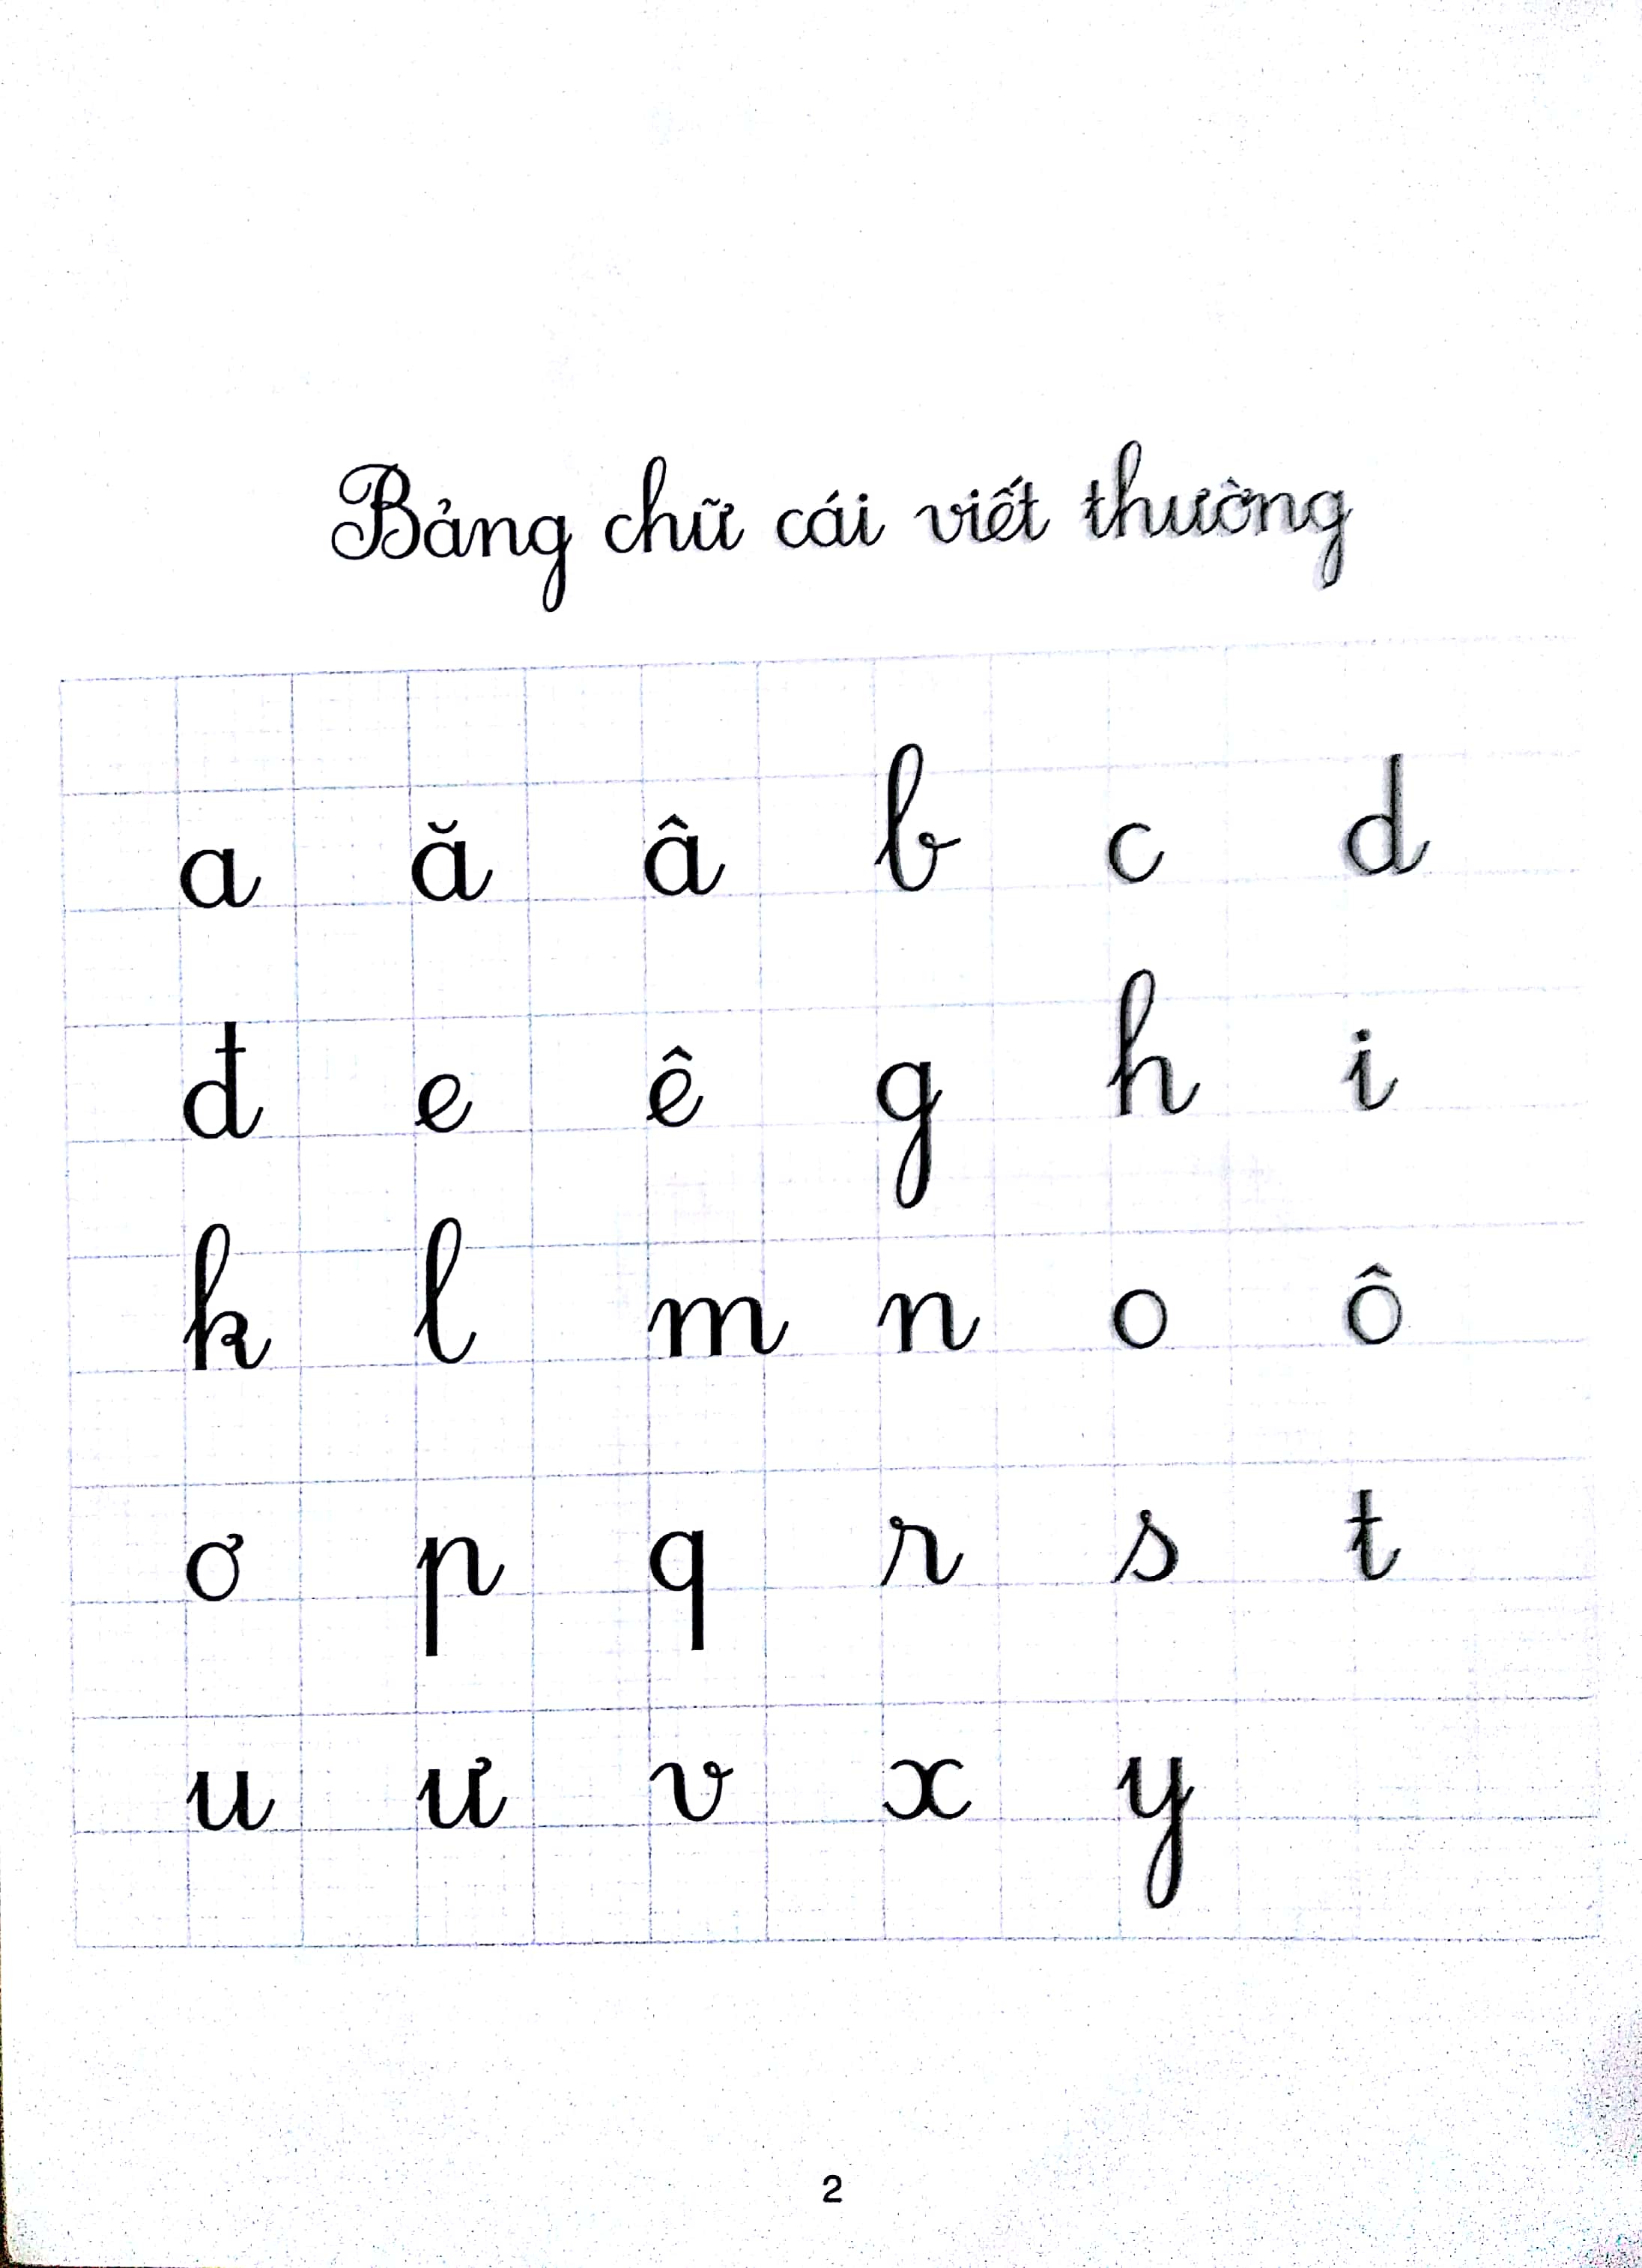 Bảng chữ cái viết thường
a ă â b c d
đ e ê g h i
k l m n o ô
ơ p q r s t
u ư v x y
2